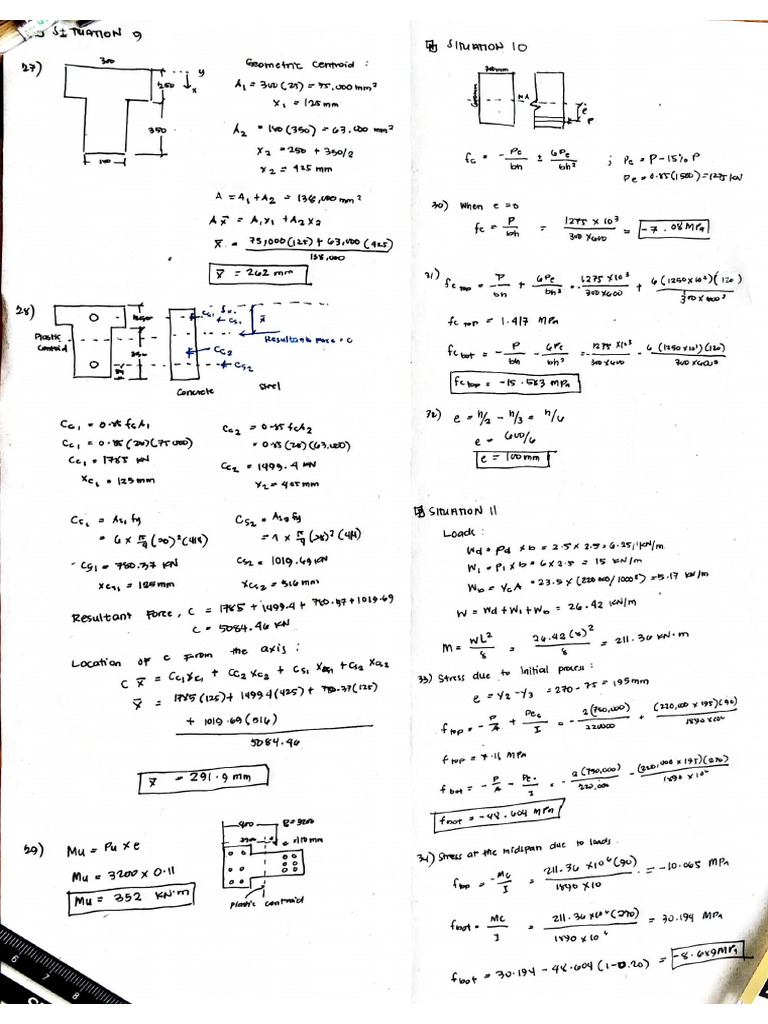 SITUATION 9
27)
300
250
y
x
350
180
Geometric Centroid :
A₁ = 300(25) = 75,000 mm²
x₁ = 125 mm
A₂ = 180(350) = 63,000 mm²
x₂ = 250 + 350/2
x₂ = 425 mm
A = A₁ + A₂ = 138,000 mm²
A x̄ = A₁x₁ + A₂x₂
x̄ = 75,000(125) + 63,000(425)
138,000
x̄ = 262 mm
28)
Plastic
Centroid
350
Cc₁
Cs₁
x̄
Resultant Force = C
Cc₂
Cs₂
Concrete
Steel
Cc₁ = 0.85 fc A₁
Cc₁ = 0.85(28)(75000)
Cc₁ = 1785 KN
xc₁ = 125 mm
Cc₂ = 0.85 fc A₂
= 0.85(28)(63,000)
Cc₂ = 1499.4 KN
x₂ = 425 mm
Cs₁ = As₁ fy
= 6 × π/4 (20)²(414)
Cs₁ = 780.37 KN
xcs₁ = 125 mm
Cs₂ = As₂ fy
= 4 × π/4 (28)²(414)
Cs₂ = 1019.69 KN
xcs₂ = 516 mm
Resultant Force, C = 1785 + 1499.4 + 780.37 + 1019.69
C = 5084.46 KN
Location of C from the axis :
C x̄ = Cc₁xc₁ + Cc₂xc₂ + Cs₁xcs₁ + Cs₂xcs₂
x̄ = 1785(125) + 1499.4(425) + 780.37(125)
+ 1019.69(516)
5084.46
x̄ = 291.9 mm
29)
Mu = Pu × e
Mu = 3200 × 0.11
Mu = 352 KN·m
400
P = 3200
e = 110 mm
Plastic Centroid
SITUATION 10
300mm
600mm
NA
e
P
fc = - Pe/bh ± 6Pe/bh² ; Pe = P - 15% P
Pe = 0.85(1500) = 1275 kN
30) When e = 0
fc = P/bh = 1275 × 10³/300 × 600 = -7.08 MPa
31) fc top = - P/bh + 6Pe/bh² = - 1275 × 10³/300 × 600 + 6(1250 × 10³)(120)/300 × 600²
fc top = 1.417 MPa
fc bot = - P/bh - 6Pe/bh² = - 1275 × 10³/300 × 600 - 6(1250 × 10³)(120)/300 × 600²
fc top = -15.583 MPa
32) e = h/2 - h/3 = h/6
e = 600/6
e = 100 mm
SITUATION 11
Loads :
Wd = Pd × b = 2.5 × 2.5 = 6.25 kN/m
W₁ = P₁ × b = 6 × 2.5 = 15 KN/m
Wb = γc A = 23.5 × (220000/1000²) = 5.17 kN/m
W = Wd + W₁ + Wb = 26.42 KN/m
M = WL²/8 = 26.42(8)²/8 = 211.36 KN·m
33) Stress due to initial process :
e = y₂ - y₃ = 270 - 75 = 195 mm
f top = - P/A + Pec/I = - 2(780,000)/220000 + (220,000 × 195)(90)/1890 × 10⁶
f top = 7.11 MPa
f bot = - P/A - Pe·/I = - 2(790,000)/220,000 - (220,000 × 195)(270)/1890 × 10⁶
f bot = -48.604 MPa
34) Stress at the midspan due to loads.
f top = - Mc/I = 211.36 × 10⁶(90)/1890 × 10 = -10.065 MPa
f bot = Mc/I = 211.36 × 10⁶(270)/1890 × 10⁶ = 30.194 MPa
f bot = 30.194 - 48.604(1 - 0.20) = -8.689 MPa
6 7 8